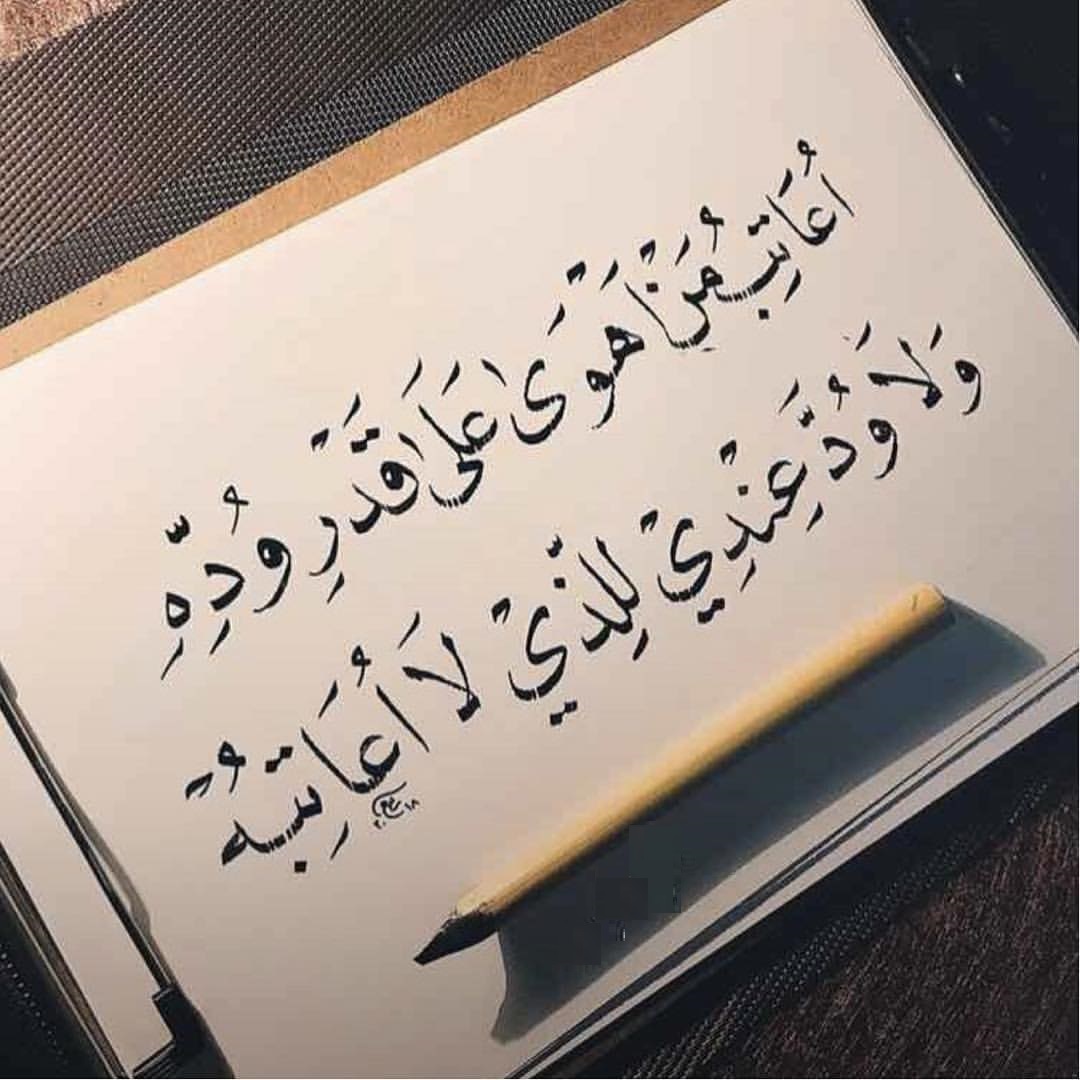 أُعَاتِبُ مَنْ أَهْوَى عَلَى قَدْرِ وُدِّهِ
وَلَا وُدَّ عِنْدِيْ لِلَّذِيْ لَا أُعَاتِبُهُ